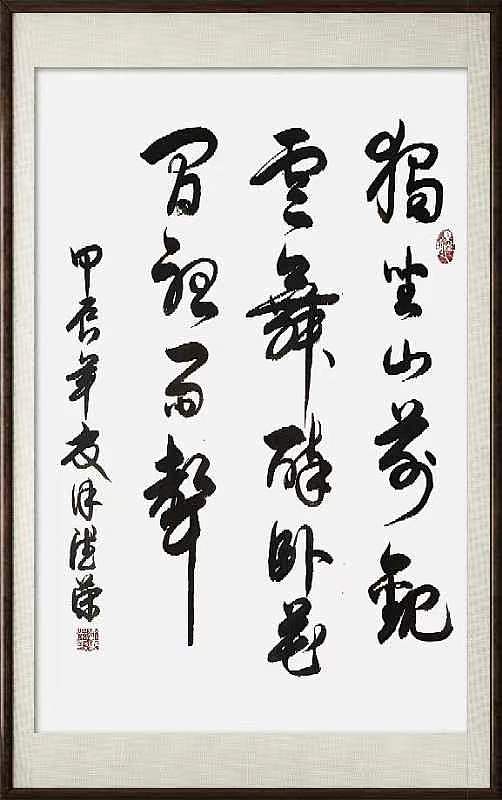 獨坐山前觀
雲舞醉卧花
間聽雨聲
甲辰年